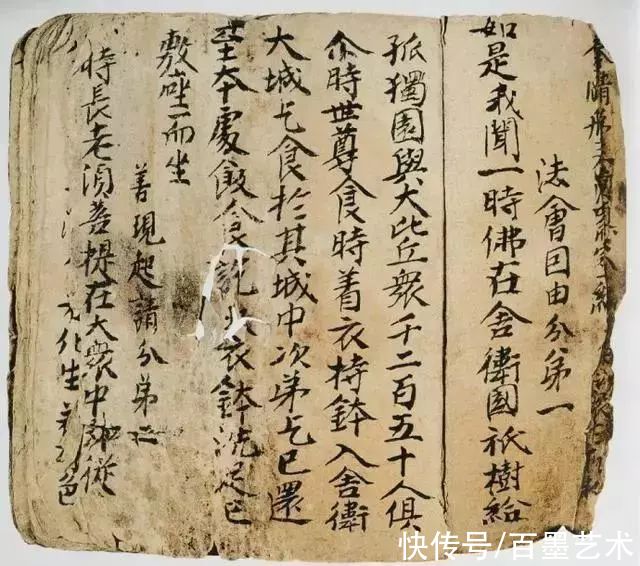 法會囙由分弟一
如是我聞一時佛在舍衛國祇樹給
孤獨園與大比丘衆千二百五十人俱
尒時世尊食時着衣持鉢入舍衛
大城乞食於其城中次弟乞已還
至本處飯食訖衣鉢洗足已
敷座而坐
善現起請分弟二
時長老須菩提在大衆中即從
化生若色
快传号/百墨艺术